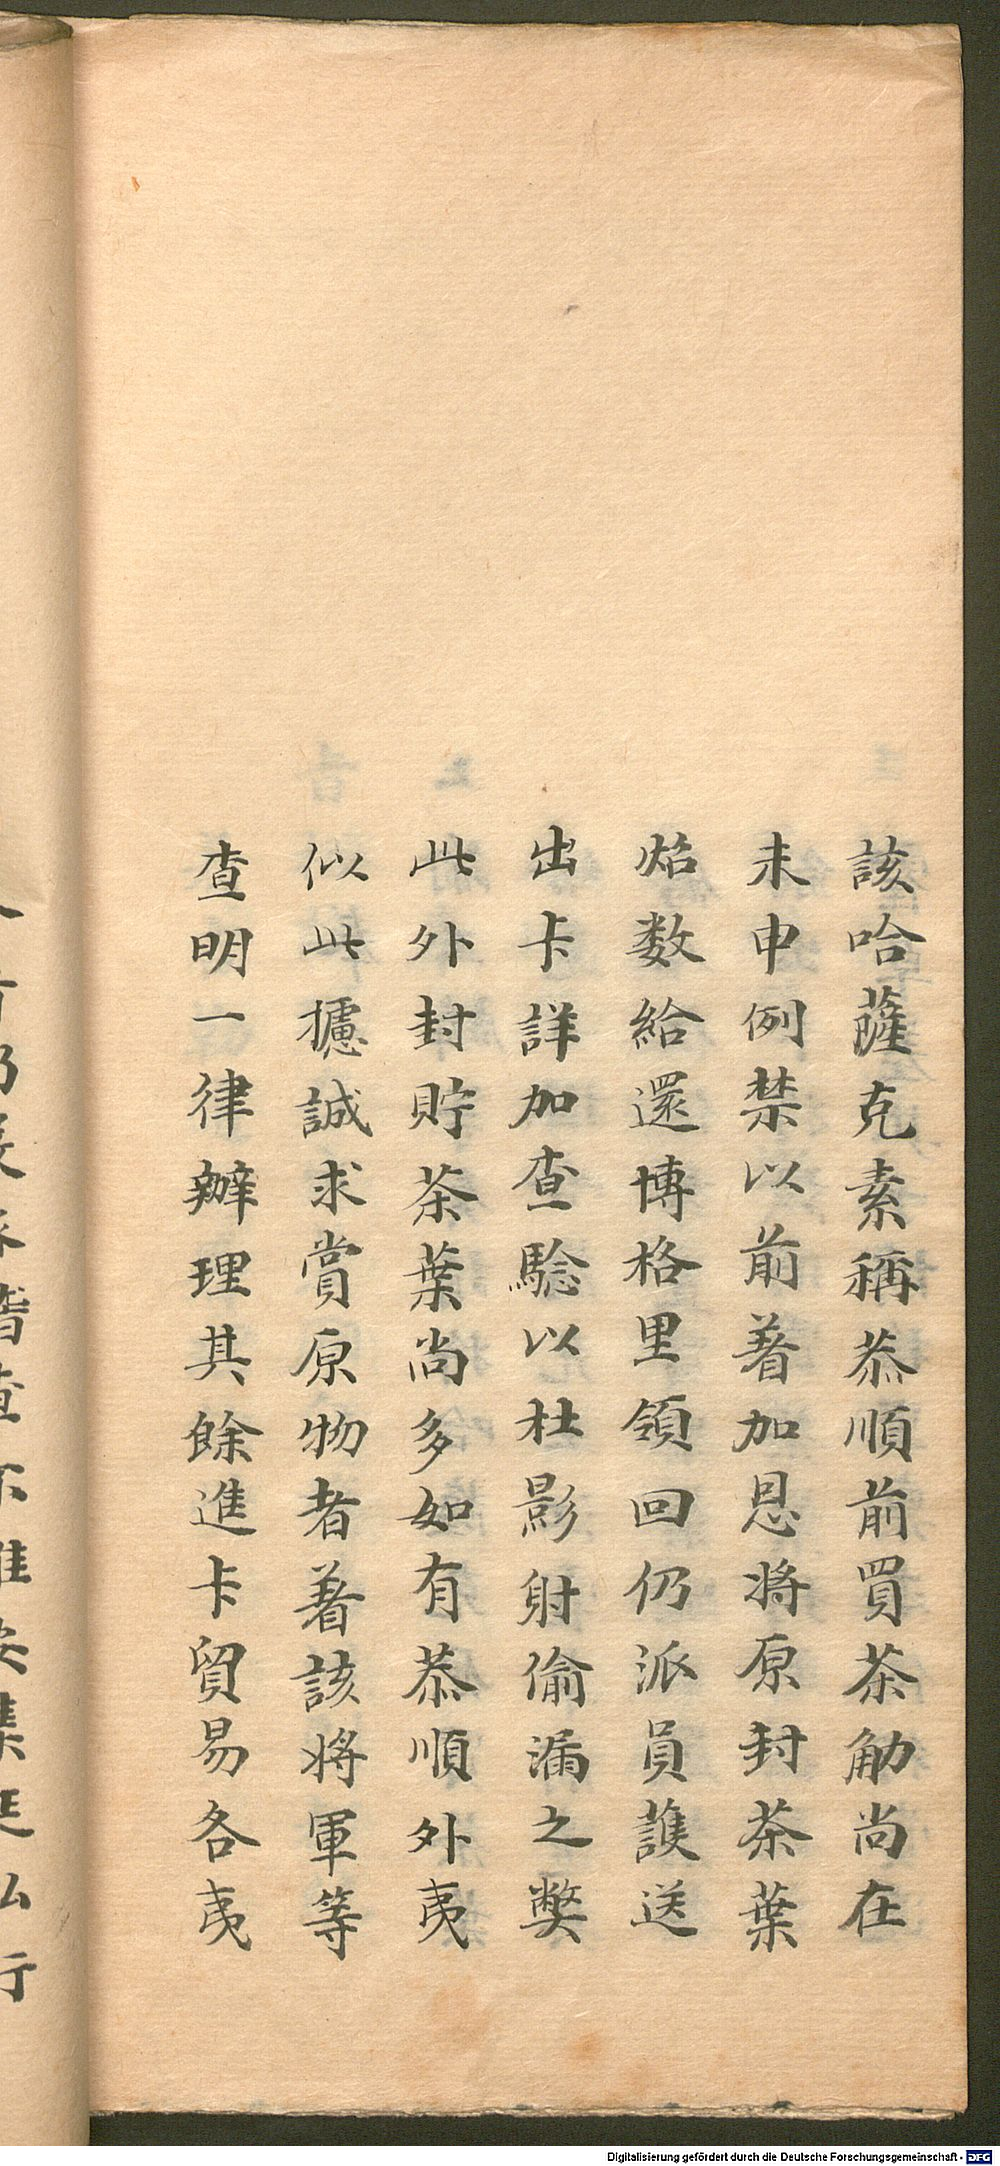 該哈薩克素稱恭順前買茶觔尚在
未申例禁以前着加恩將原封茶葉
炤数給還博格里領回仍派員護送
出卡詳加查驗以杜影射偷漏之獘
此外封貯茶葉尚多如有恭順外夷
似此攄誠求賞原物者着該將軍等
查明一律辦理其餘進卡貿易各夷
Digitalisierung gefördert durch die Deutsche Forschungsgemeinschaft - DFG